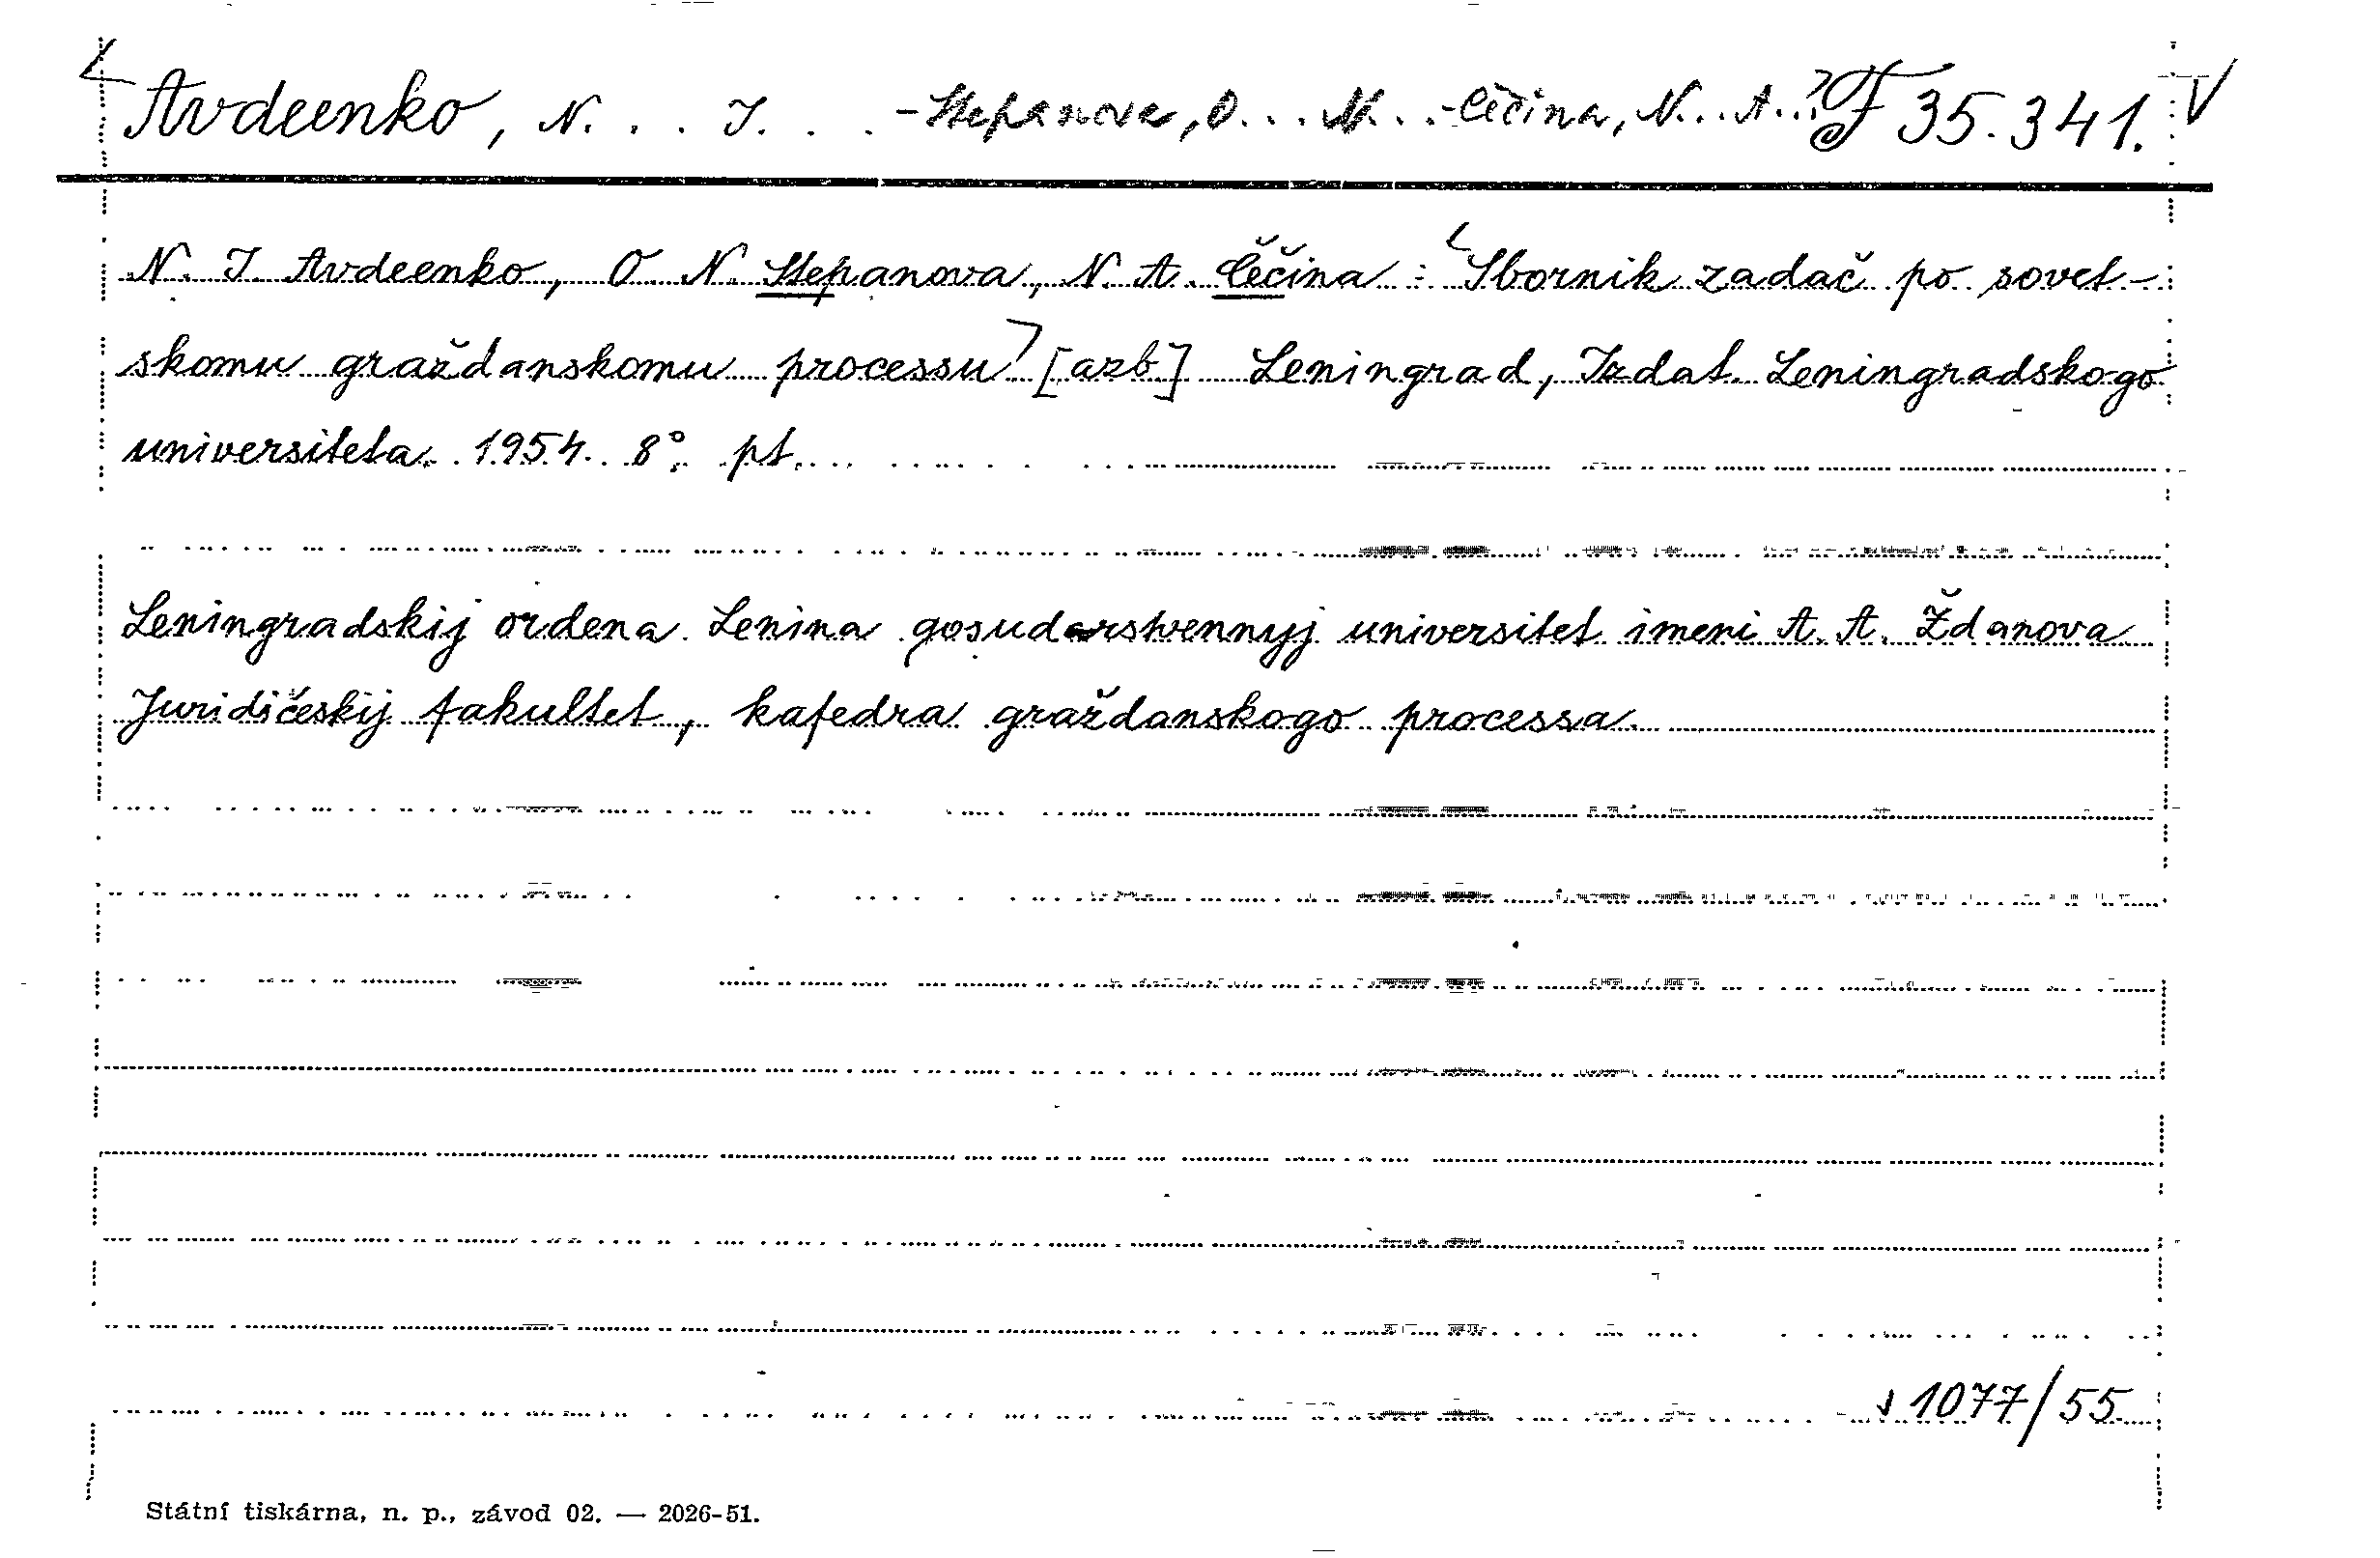 Avdeenko, N... I... - Stepanova, O... N... - Čěčina, N.. A... F 35.341. V
N. I. Avdeenko, O. N. Stepanova, N. A. Čěčina : Sbornik zadač po sovet-
skomu graždanskomu processu [azb] Leningrad, Izdat. Leningradskogo
universiteta. 1954. 8°. pt.
Leningradskij ordena Lenina gosudarstvennyj universitet imeni A. A. Ždanova
Juridičeskij fakultet, kafedra graždanskogo processa.
1077/55
Státní tiskárna, n. p., závod 02. — 2026-51.